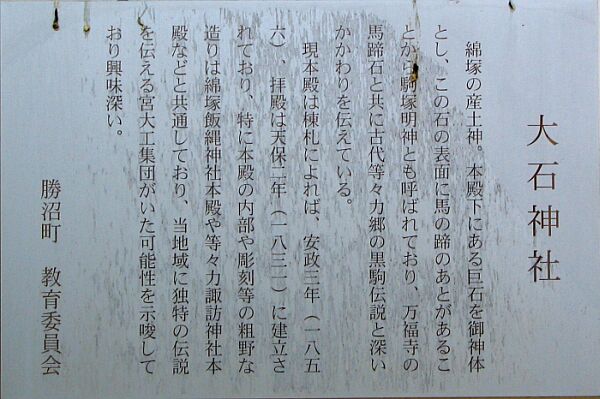 大石神社
綿塚の産土神。本殿下にある巨石を御神体
とし、この石の表面に馬の蹄のあとがあるこ
とから駒塚明神とも呼ばれており、万福寺の
馬蹄石と共に古代等々力郷の黒駒伝説と深い
かかわりを伝えている。
現本殿は棟札によれば、安政三年（一八五
六）、拝殿は天保二年（一八三一）に建立さ
れており、特に本殿の内部や彫刻等の粗野な
造りは綿塚飯縄神社本殿や等々力諏訪神社本
殿などと共通しており、当地域に独特の伝説
を伝える宮大工集団がいた可能性を示唆して
おり興味深い。
勝沼町　教育委員会